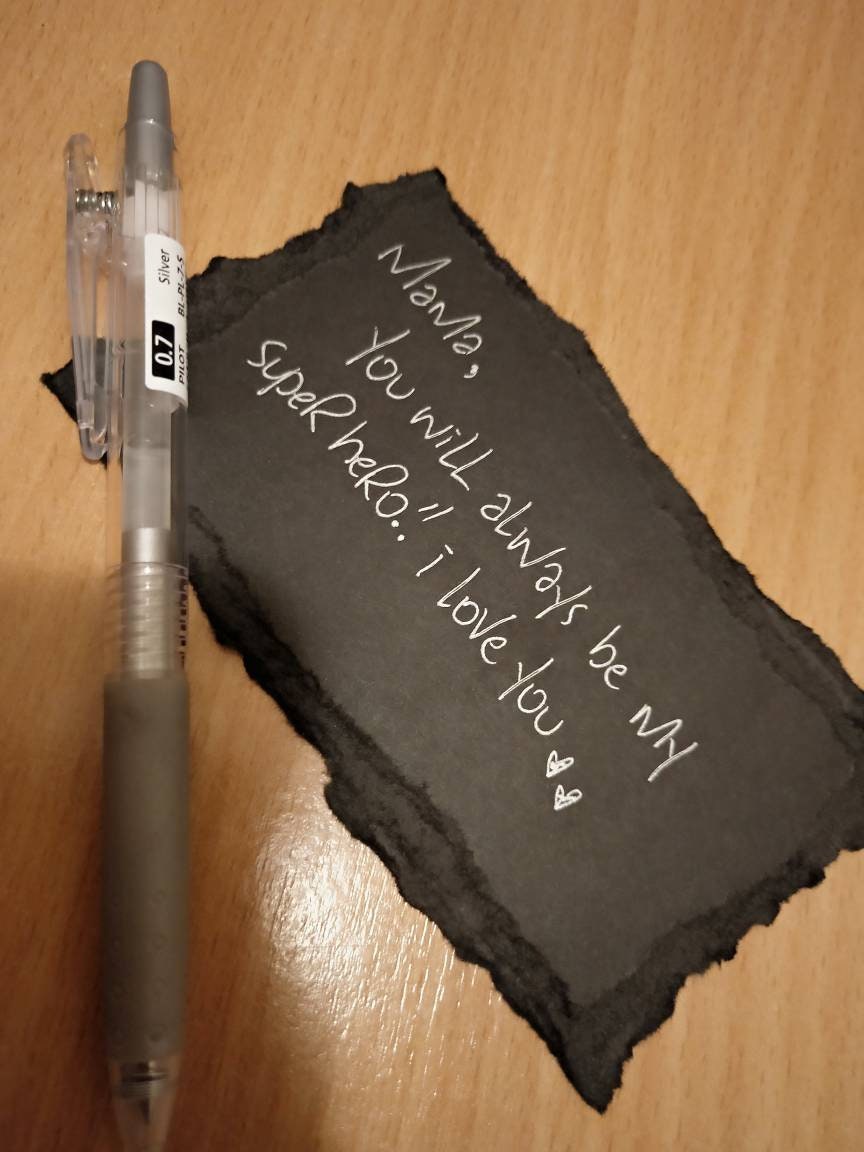 Mama,
You will always be my
super hero..!! i love you
Silver
0.7
PILOT BL-PL-7-S